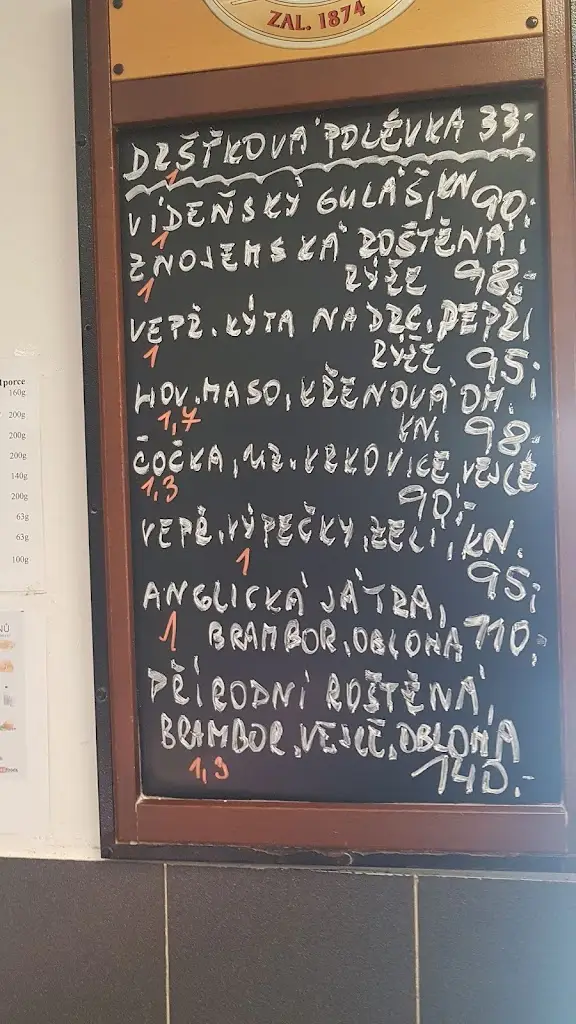 ZAL. 1874
DRŠŤKOVÁ POLÉVKA 33,-
1
VÍDEŇSKÝ GULÁŠ, KN 90,-
1
ZNOJEMSKÁ ROŠTĚNÁ,
1
RÝŽE 98,-
VEPŘ. KÝTA NA DRC. PEPŘI
1
RÝŽE 95,-
HOV. MASO, KŘENOVÁ OM.
1,7
KN. 98.-
ČOČKA, UZ. KRKOVICE, VEJCE
1,3
90,-
VEPŘ. VÝPEČKY, ZELÍ, KN.
1
95,-
ANGLICKÁ JÁTRA,
1
BRAMBOR, OBLOHA 110,-
PŘÍRODNÍ ROŠTĚNÁ,
BRAMBOR, VEJCE, OBLOHA
1,3
140,-
1porce
160g
200g
200g
200g
140g
200g
63g
63g
100g